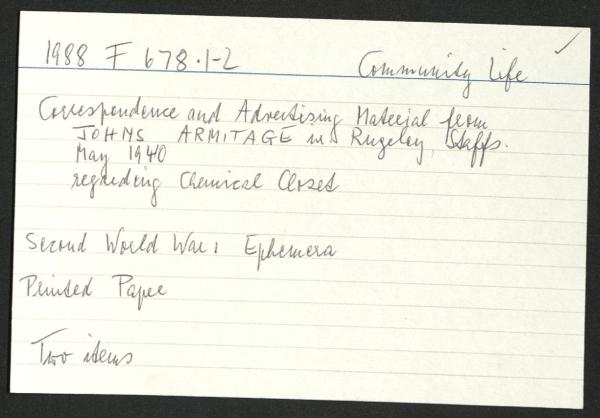 1988 F 678.1-2 Community Life
Correspondence and Advertising Material from
JOHNS ARMITAGE in Rugeley, Staffs.
May 1940
regarding Chemical Closet
Second World War: Ephemera
Printed Paper
Two items